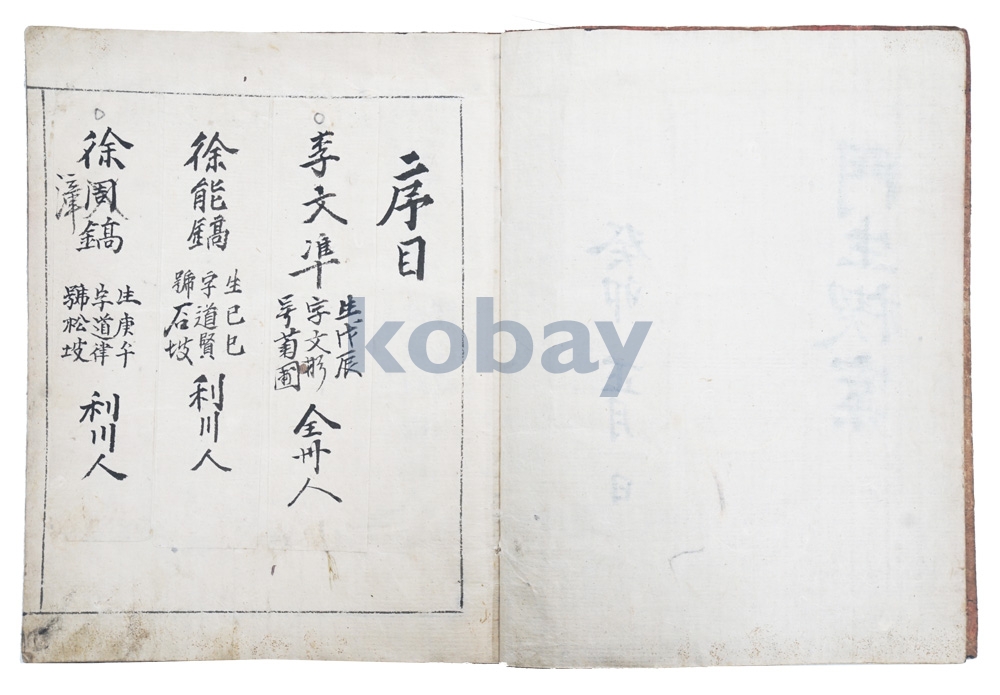 序目
李文準
生戊辰
字文
号菊圃
全州人
徐能鎬
生己巳
字道賢
號石坡
利川人
徐周鎬
生庚午
字道律
號松坡
利川人
kobay